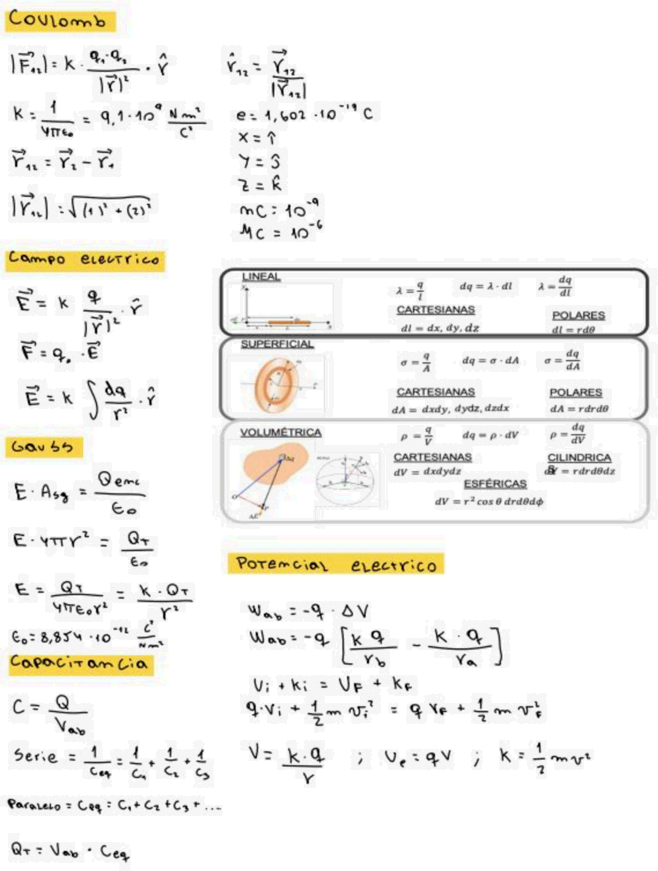 Coulomb
|F⃗₁₂| = k · q₁·q₂ / |r⃗|² · r̂
k = 1 / 4πε₀ = 9,1·10⁹ Nm² / C²
r⃗₁₂ = r⃗₂ − r⃗₁
|r⃗₁₂| = √(1)² + (2)²
r̂₁₂ = r⃗₁₂ / |r⃗₁₂|
e = 1,602 · 10⁻¹⁹ C
X = î
Y = ĵ
Z = k̂
mC = 10⁻⁹
MC = 10⁻⁶
Campo electrico
E⃗ = k q / |r⃗|² · r̂
F⃗ = q₀ · E⃗
E⃗ = k ∫ dq / r² · r̂
LINEAL
λ = q / l   dq = λ · dl   λ = dq / dl
CARTESIANAS   POLARES
dl = dx, dy, dz   dl = rdθ
SUPERFICIAL
σ = q / A   dq = σ · dA   σ = dq / dA
CARTESIANAS   POLARES
dA = dxdy, dydz, dzdx   dA = rdrdθ
VOLUMÉTRICA
ρ = q / V   dq = ρ · dV   ρ = dq / dV
CARTESIANAS   CILINDRICA
dV = dxdydz   = rdrdθdz
ESFÉRICAS
dV = r² cos θ drdθdϕ
Gauss
E · Asg = Qenc / ε₀
E · 4πr² = QT / ε₀
E = QT / 4πε₀r² = k · QT / r²
ε₀ = 8,854 · 10⁻¹² C² / Nm²
Potencial electrico
Wab = −q · ΔV
Wab = −q [ k q / rb − k · q / ra ]
Ui + ki = UF + kF
q·Vi + 1/2 m vi² = q VF + 1/2 m vF²
V = k·q / r ; Ue = qV ; k = 1/2 mv²
Capacitancia
C = Q / Vab
Serie = 1/Ceq = 1/C1 + 1/C2 + 1/C3
Paralelo = Ceq = C1 + C2 + C3 + ...
QT = Vab · Ceq